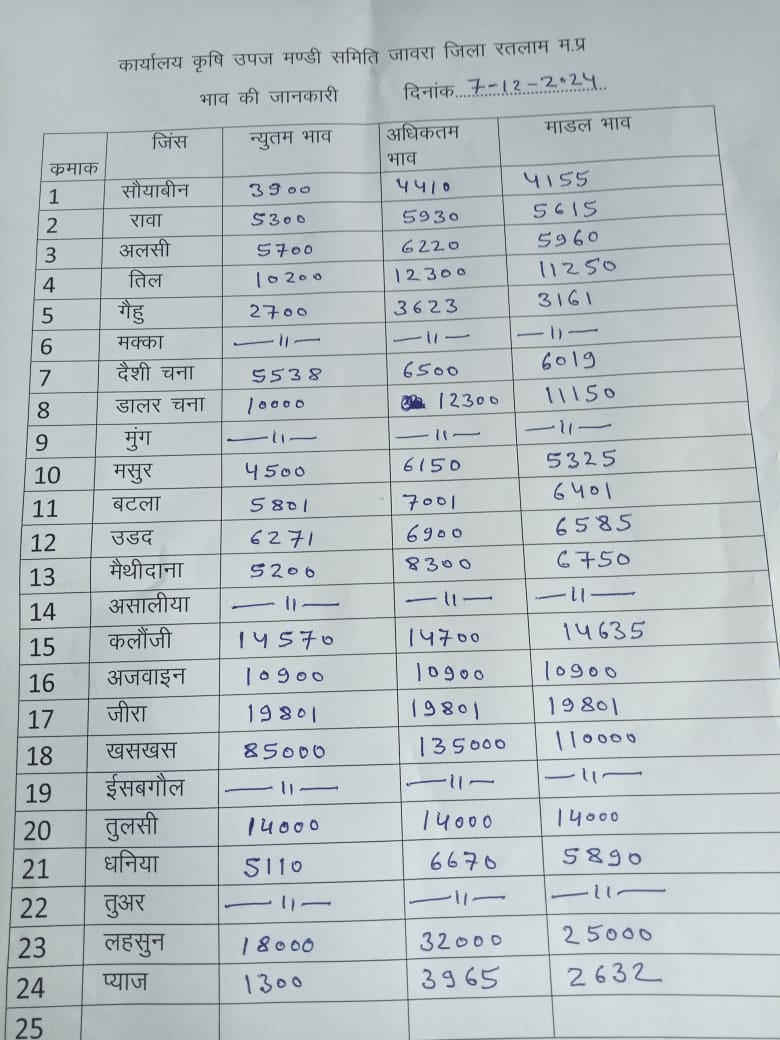 कार्यालय कृषि उपज मण्डी समिति जावरा जिला रतलाम म.प्र
भाव की जानकारी दिनांक 7-12-2024
कमाक जिंस न्युतम भाव अधिकतम भाव माडल भाव
1 सौयाबीन 3900 4410 4155
2 रावा 5300 5930 5615
3 अलसी 5700 6220 5960
4 तिल 10200 12300 11250
5 गैहु 2700 3623 3161
6 मक्का —11— —11— —11—
7 दैशी चना 5538 6500 6019
8 डालर चना 10000 12300 11150
9 मुंग —11— —11— —11—
10 मसुर 4500 6150 5325
11 बटला 5801 7001 6401
12 उडद 6271 6900 6585
13 मैथीदाना 5200 8300 6750
14 असालीया —11— —11— —11—
15 कलौंजी 14570 14700 14635
16 अजवाइन 10900 10900 10900
17 जीरा 19801 19801 19801
18 खसखस 85000 135000 110000
19 ईसबगौल —11— —11— —11—
20 तुलसी 14000 14000 14000
21 धनिया 5110 6670 5890
22 तुअर —11— —11— —11—
23 लहसुन 18000 32000 25000
24 प्याज 1300 3965 2632
25